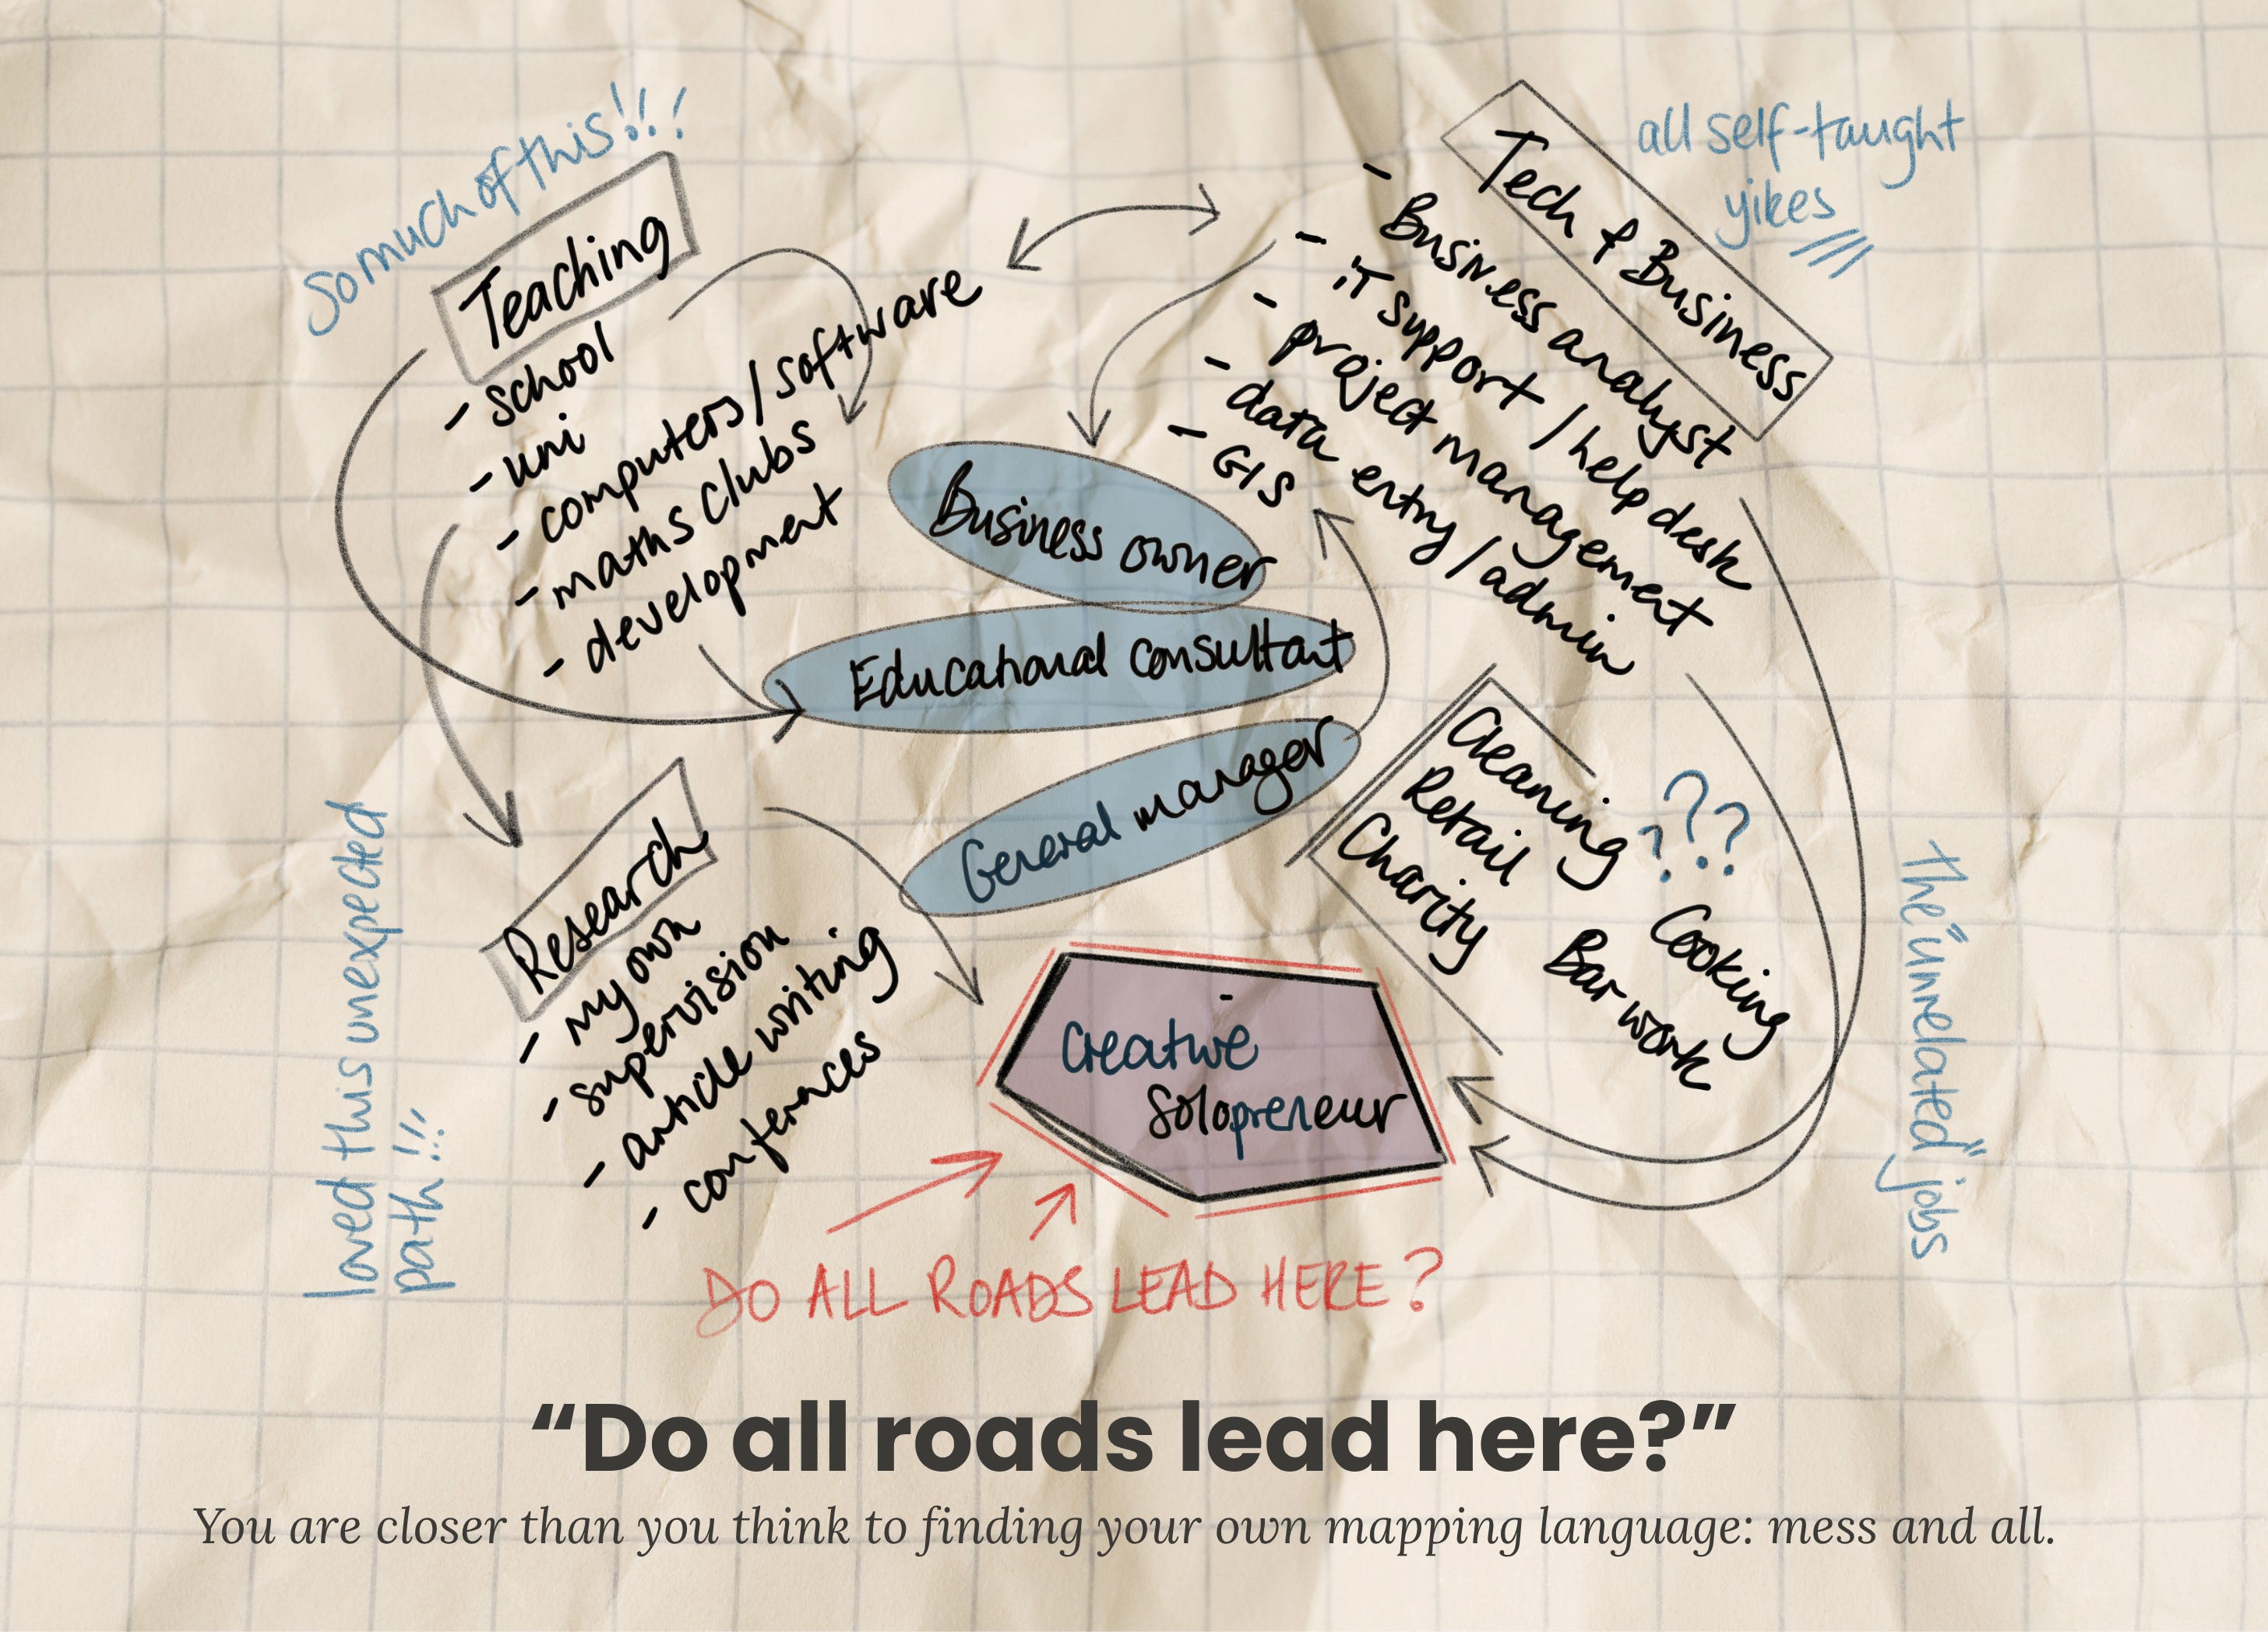 So much of this!!!
Teaching
- school
- uni
- computers/software
- maths clubs
- development
all self-taught
yikes
Tech & Business
- Business analyst
- iT support/help desk
- project management
- data entry/admin
- GIS
Business owner
Educational consultant
General manager
loved this unexpected
path!!!
Research
- my own
- supervision
- article writing
- conferences
Cleaning
Retail
Charity
???
Cooking
Bar work
the "unrelated" jobs
Creative
Solopreneur
DO ALL ROADS LEAD HERE?
“Do all roads lead here?”
You are closer than you think to finding your own mapping language: mess and all.